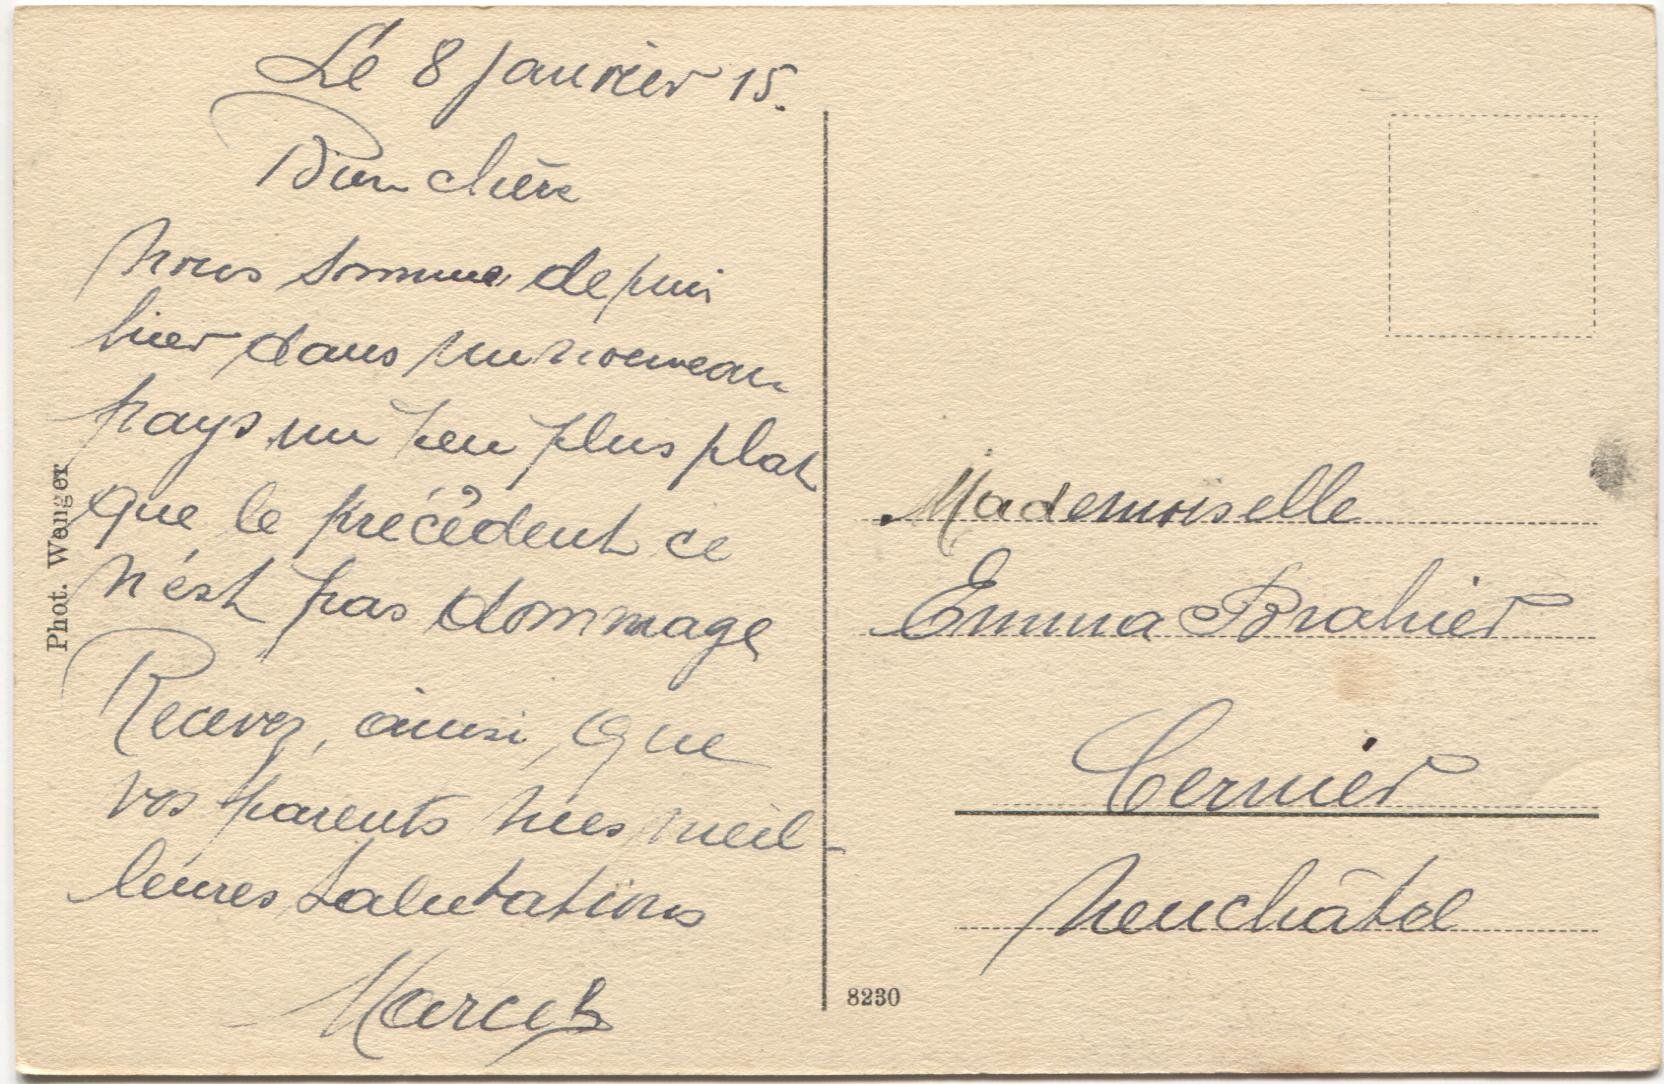 Le 8 Janvier 15.
Bien chère
nous somme depuis
hier dans un nouveau
pays un peu plus plat
que le précédent ce
n'est pas dommage
Recevez, ainsi que
vos parents mes meil-
leures salutations
Marcel
Phot. Wenger
Mademoiselle
Emma Brahier
Cernier
Neuchâtel
8230